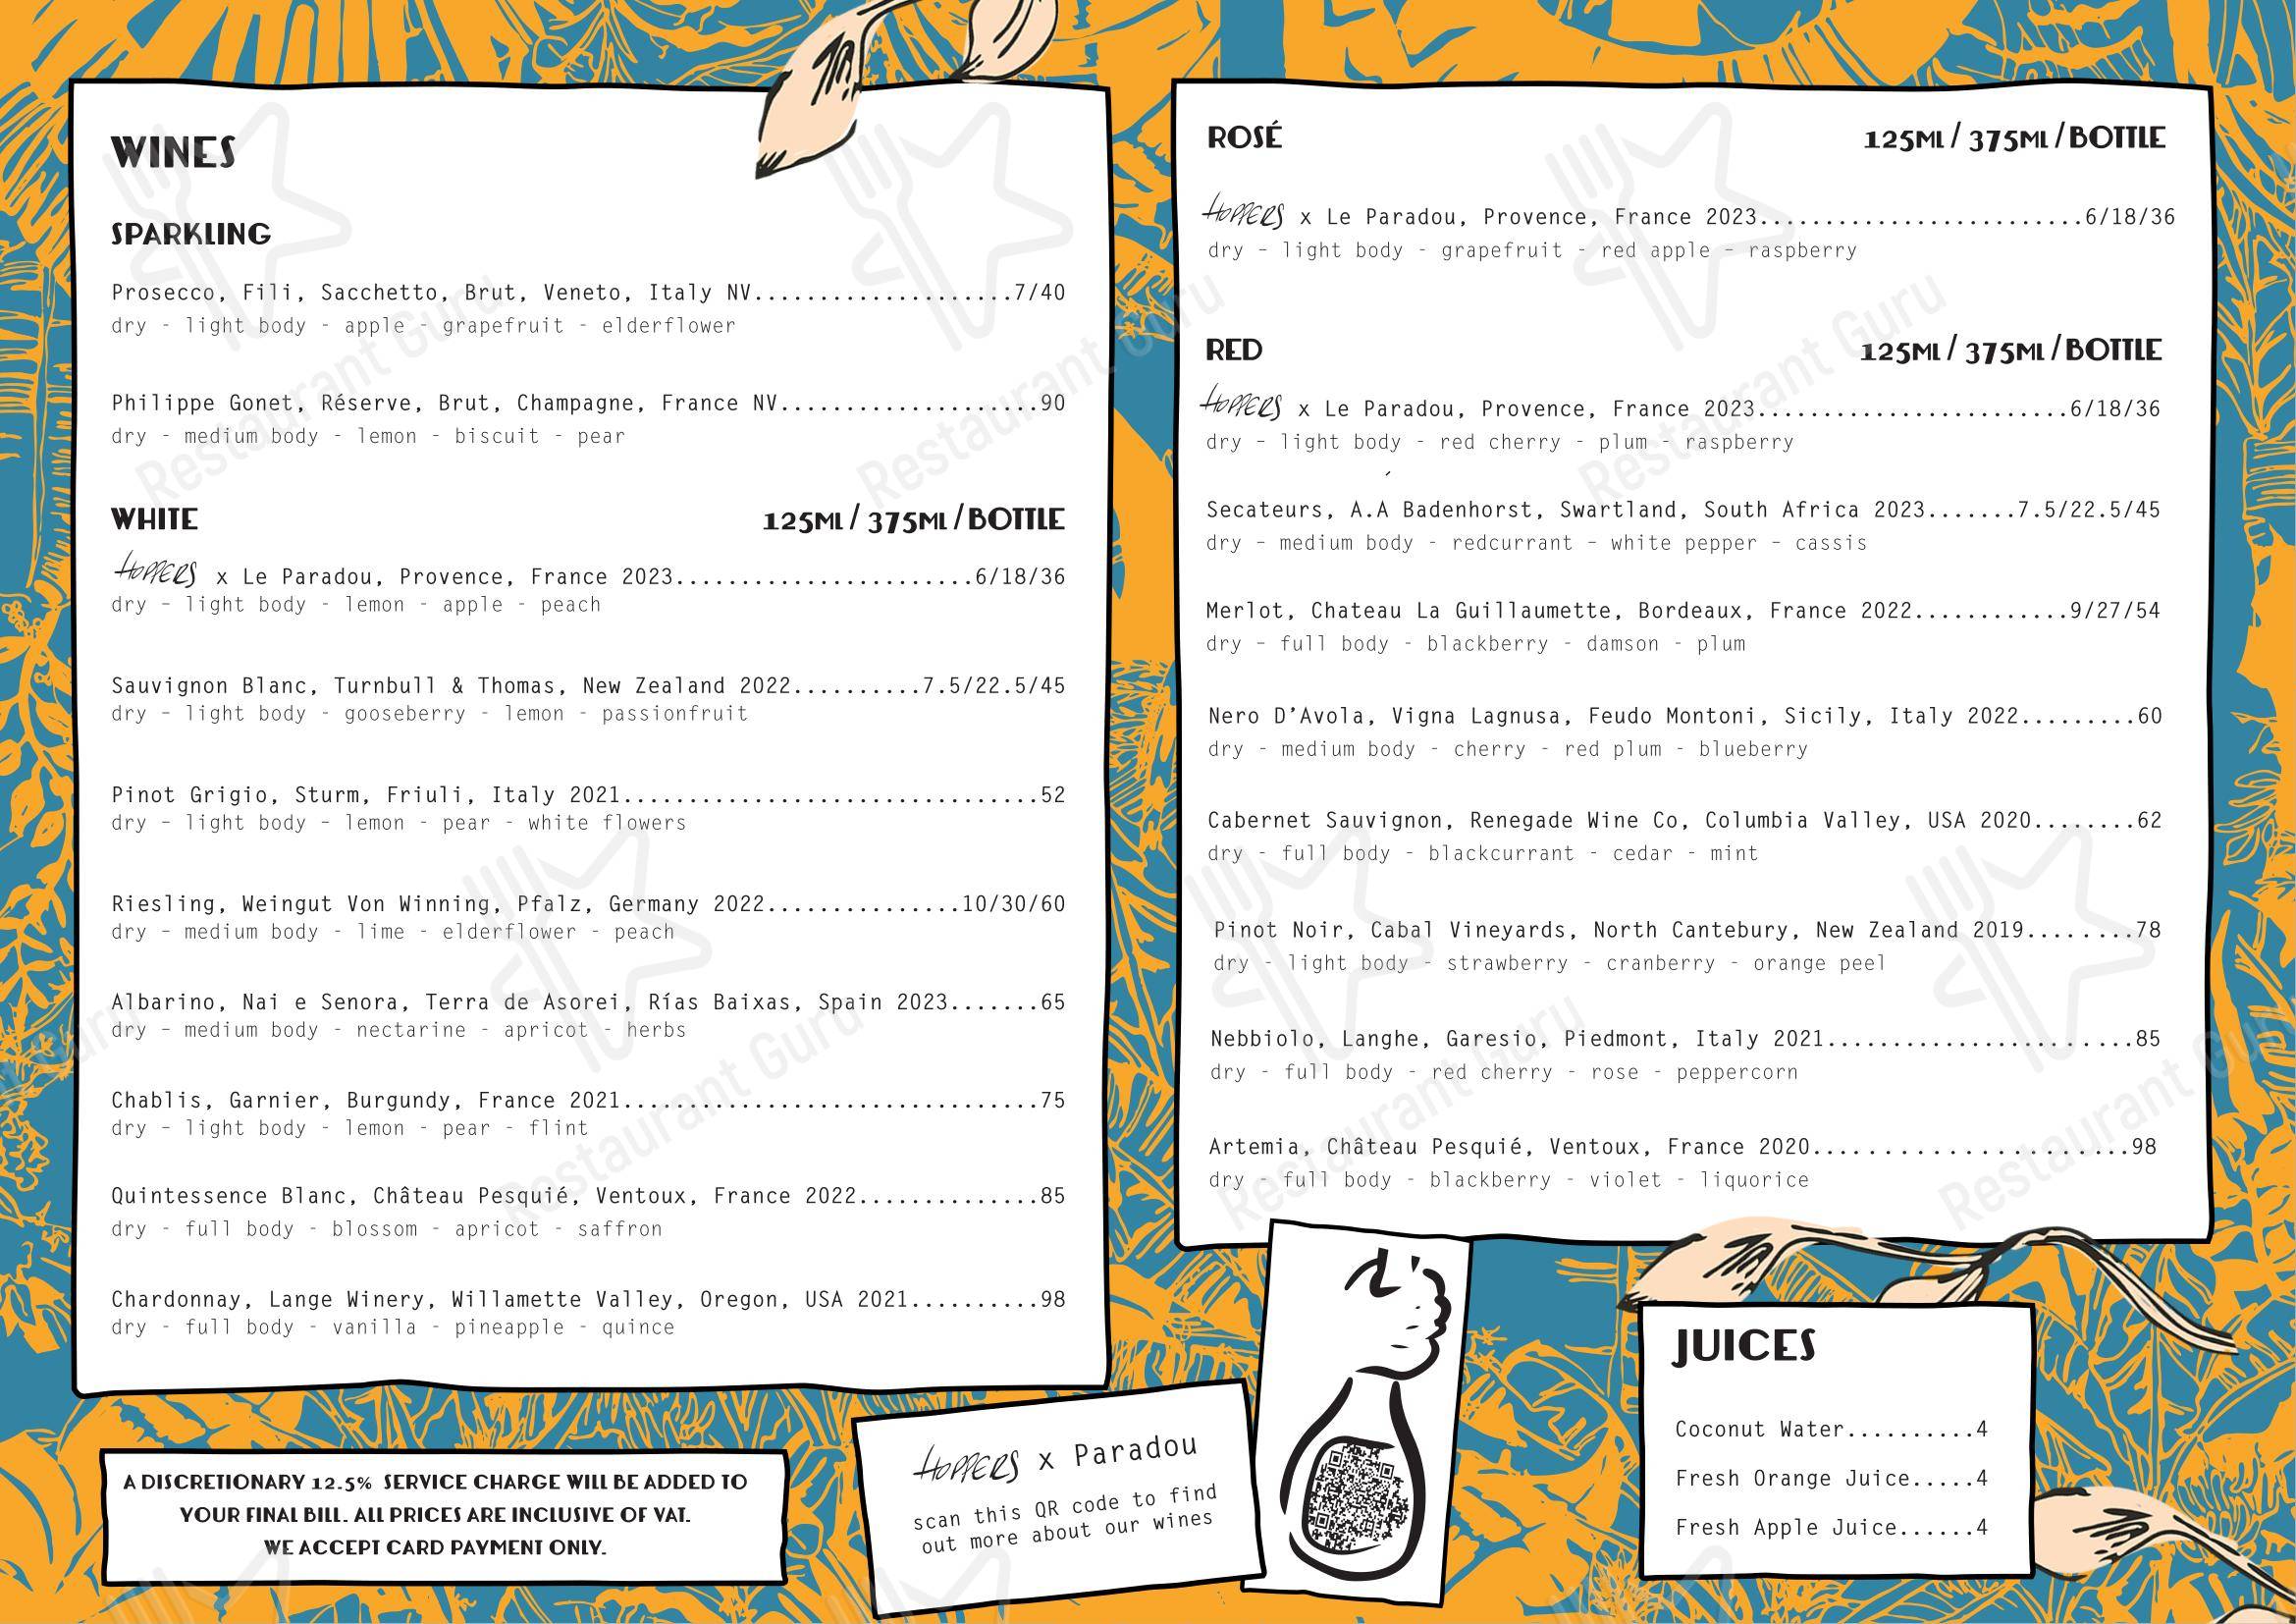 WINES
SPARKLING
Prosecco, Fili, Sacchetto, Brut, Veneto, Italy NV....................7/40
dry - light body - apple - grapefruit - elderflower
Philippe Gonet, Réserve, Brut, Champagne, France NV....................90
dry - medium body - lemon - biscuit - pear
WHITE 125ML / 375ML / BOTTLE
HOPPERS x Le Paradou, Provence, France 2023.......................6/18/36
dry - light body - lemon - apple - peach
Sauvignon Blanc, Turnbull & Thomas, New Zealand 2022..........7.5/22.5/45
dry - light body - gooseberry - lemon - passionfruit
Pinot Grigio, Sturm, Friuli, Italy 2021................................52
dry - light body - lemon - pear - white flowers
Riesling, Weingut Von Winning, Pfalz, Germany 2022...............10/30/60
dry - medium body - lime - elderflower - peach
Albarino, Nai e Senora, Terra de Asorei, Rías Baixas, Spain 2023.......65
dry - medium body - nectarine - apricot - herbs
Chablis, Garnier, Burgundy, France 2021................................75
dry - light body - lemon - pear - flint
Quintessence Blanc, Château Pesquié, Ventoux, France 2022..............85
dry - full body - blossom - apricot - saffron
Chardonnay, Lange Winery, Willamette Valley, Oregon, USA 2021..........98
dry - full body - vanilla - pineapple - quince
A DISCRETIONARY 12.5% SERVICE CHARGE WILL BE ADDED TO
YOUR FINAL BILL. ALL PRICES ARE INCLUSIVE OF VAT.
WE ACCEPT CARD PAYMENT ONLY.
ROSÉ 125ML / 375ML / BOTTLE
HOPPERS x Le Paradou, Provence, France 2023.........................6/18/36
dry - light body - grapefruit - red apple - raspberry
RED 125ML / 375ML / BOTTLE
HOPPERS x Le Paradou, Provence, France 2023........................6/18/36
dry - light body - red cherry - plum - raspberry
Secateurs, A.A Badenhorst, Swartland, South Africa 2023.......7.5/22.5/45
dry - medium body - redcurrant - white pepper - cassis
Merlot, Chateau La Guillaumette, Bordeaux, France 2022............9/27/54
dry - full body - blackberry - damson - plum
Nero D’Avola, Vigna Lagnusa, Feudo Montoni, Sicily, Italy 2022.........60
dry - medium body - cherry - red plum - blueberry
Cabernet Sauvignon, Renegade Wine Co, Columbia Valley, USA 2020........62
dry - full body - blackcurrant - cedar - mint
Pinot Noir, Cabal Vineyards, North Cantebury, New Zealand 2019........78
dry - light body - strawberry - cranberry - orange peel
Nebbiolo, Langhe, Garesio, Piedmont, Italy 2021........................85
dry - full body - red cherry - rose - peppercorn
Artemia, Château Pesquié, Ventoux, France 2020........................98
dry - full body - blackberry - violet - liquorice
HOPPERS x Paradou
scan this QR code to find
out more about our wines
JUICES
Coconut Water..........4
Fresh Orange Juice.....4
Fresh Apple Juice......4
Restaurant Guru
Restaurant Guru
Restaurant Guru
Restaurant Guru
Restaurant Guru
Restaurant Guru
Guru